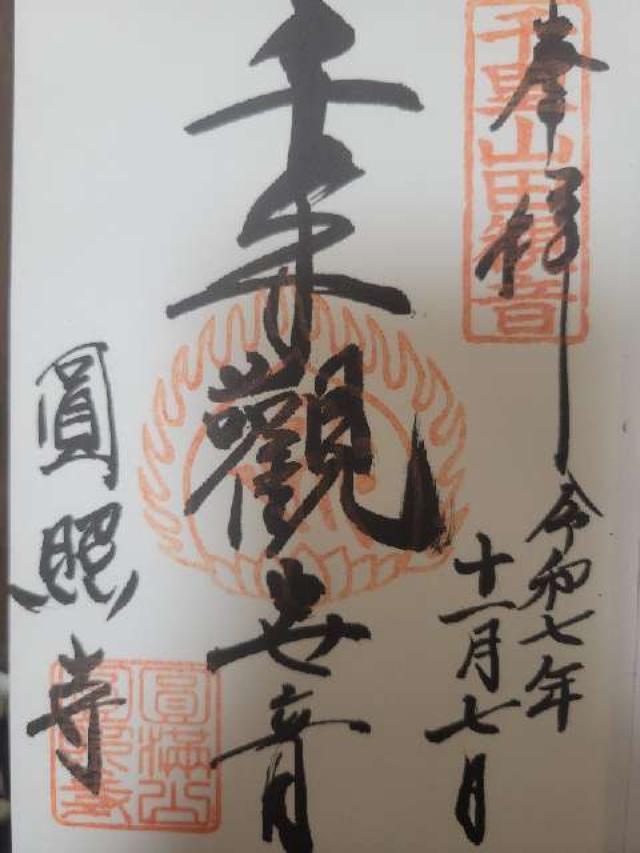 奉拝
千里山田観音
令和七年
十一月七日
千手觀世音
圓照寺